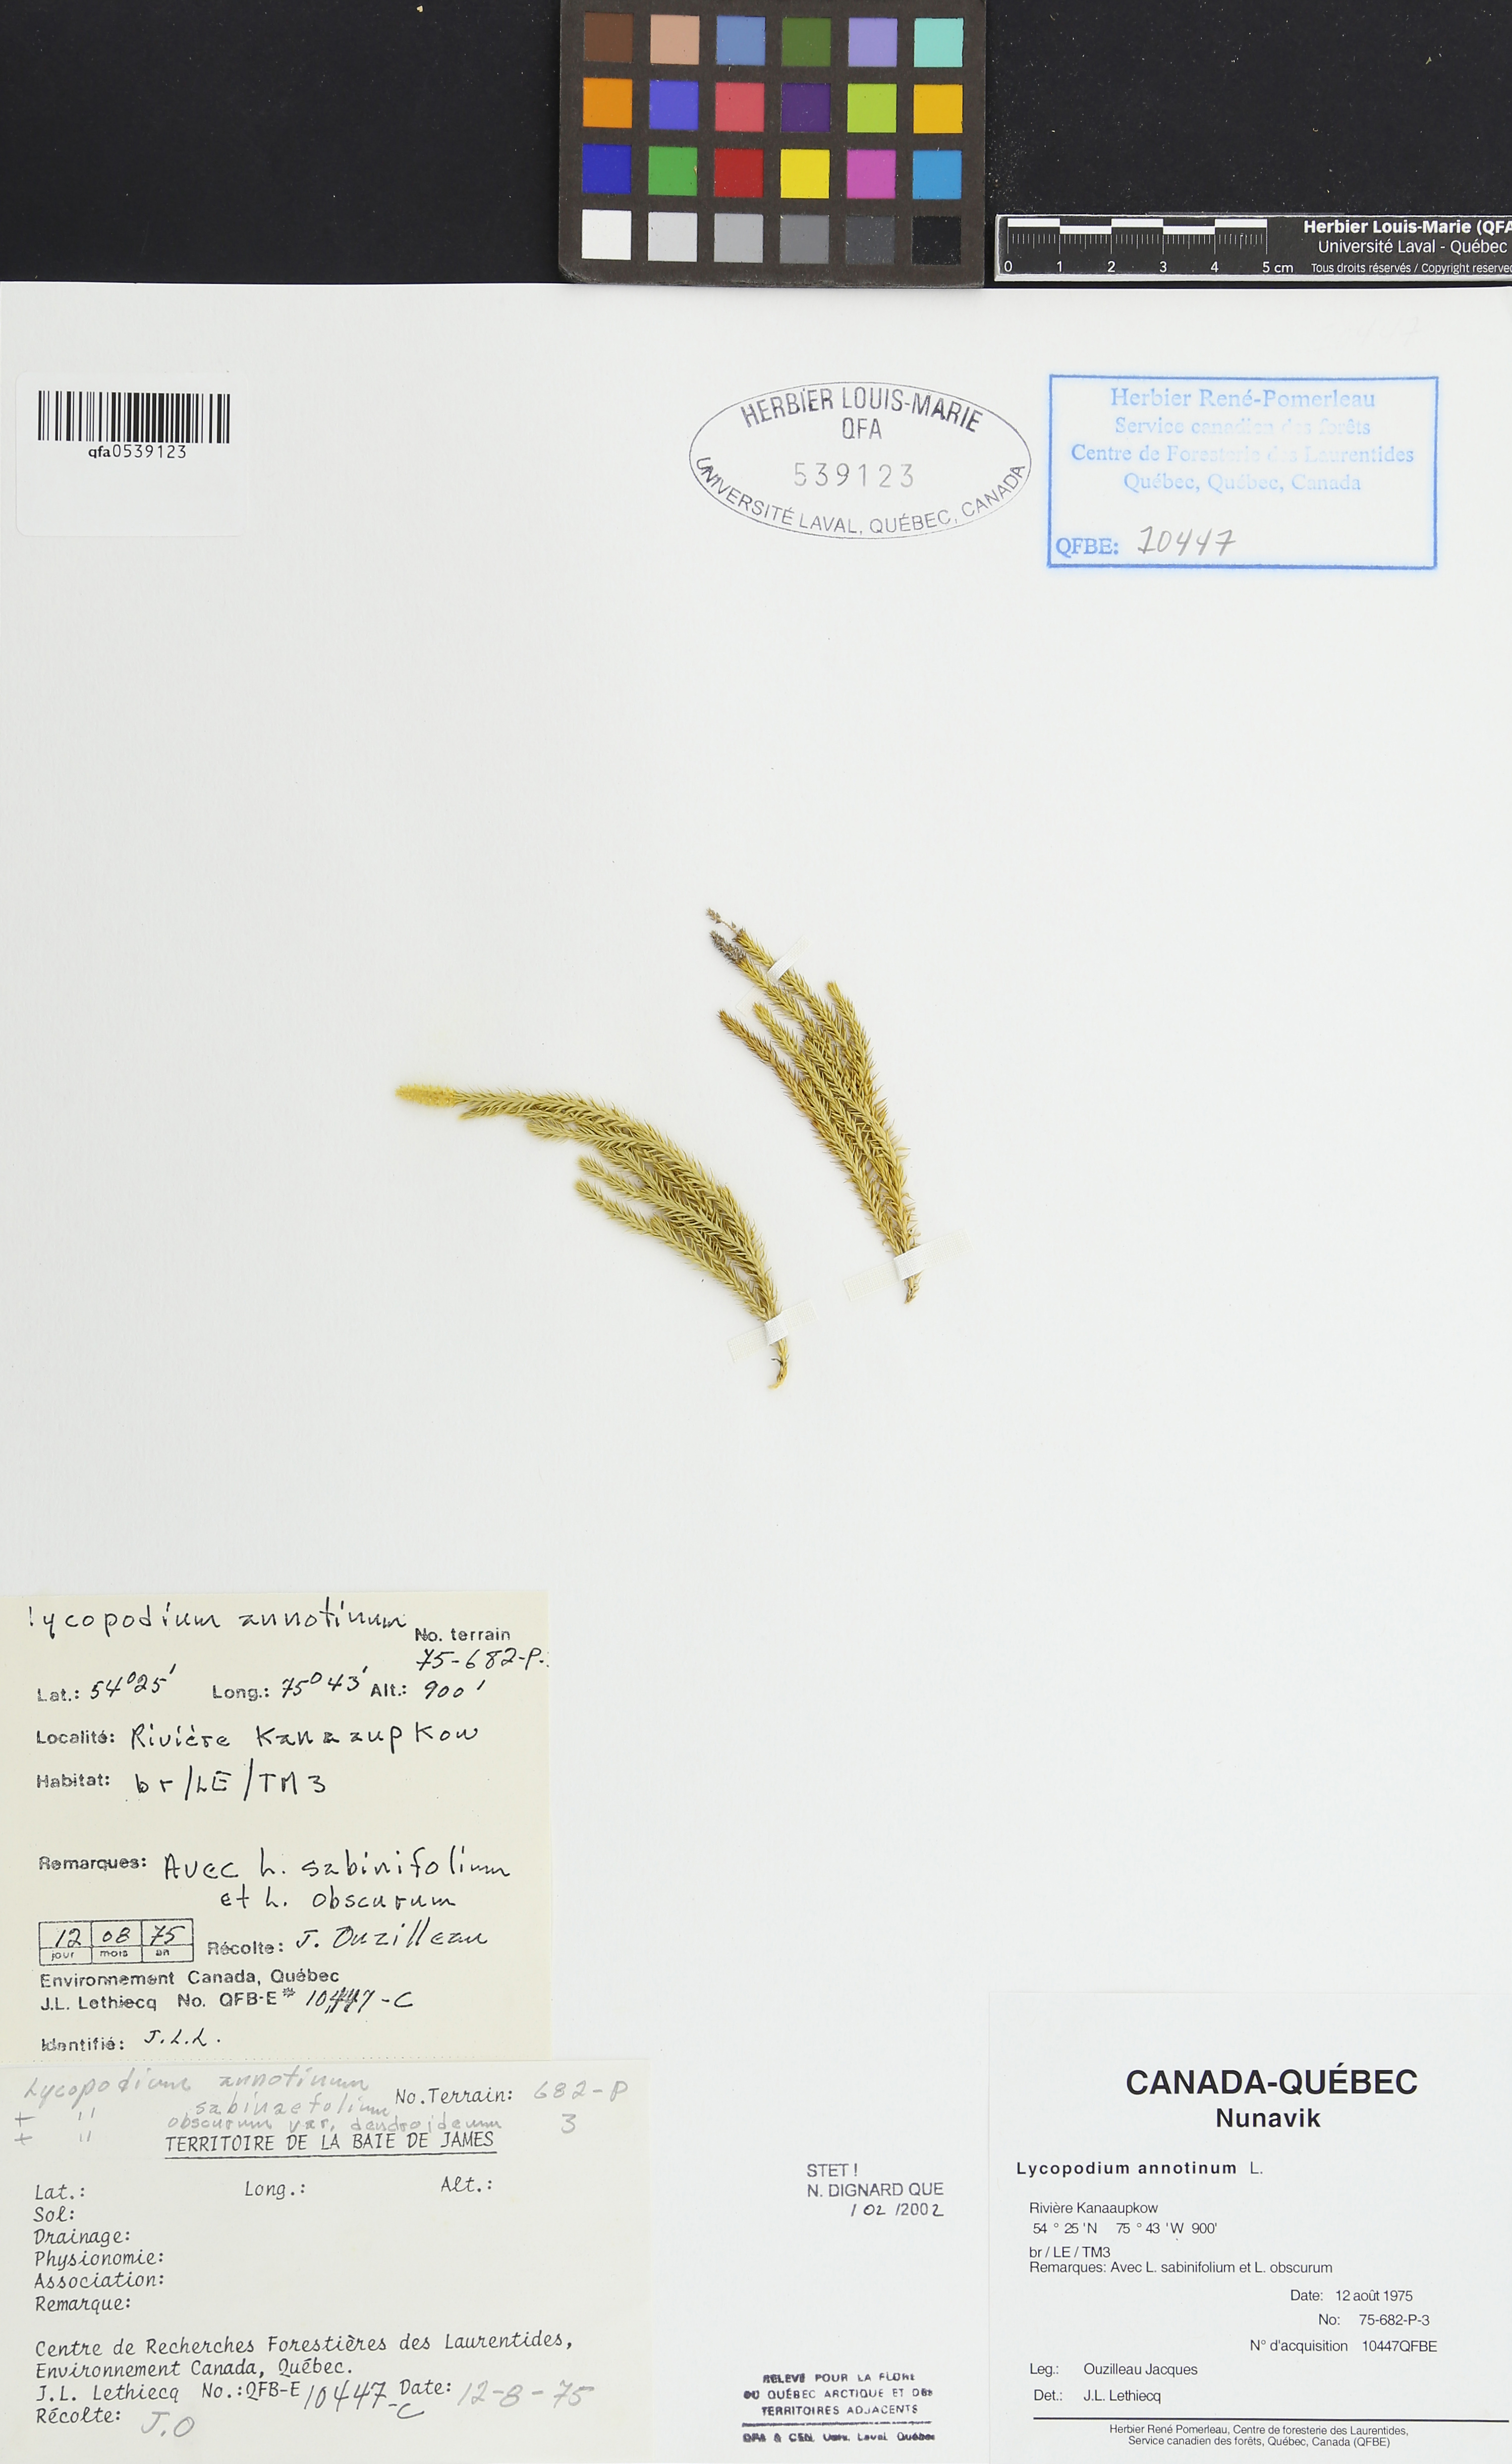 0 1 2 3 4 5 cm
Herbier Louis-Marie (QFA
Université Laval - Québec
Tous droits réservés / Copyright reserved
qfa0539123
HERBIER LOUIS-MARIE
QFA
539123
UNIVERSITÉ LAVAL, QUÉBEC, CANADA
Herbier René-Pomerleau
Service canadien des forêts
Centre de Foresterie des Laurentides
Québec, Québec, Canada
QFBE: 10447
Lycopodium annotinum
No. terrain
75-682-P-
Lat.: 54°25' Long.: 75°43' Alt.: 900'
Localité: Rivière Kanaaupkow
Habitat: br/LE/TM3
Remarques: Avec L. sabinifolium
et L. obscurum
12 08 75
jour mois an
Récolte: J. Ouzilleau
Environnement Canada, Québec
J.L. Lethiecq No. QFB-E# 10447-C
Identifié: J.L.L.
Lycopodium annotinum
No.Terrain: 682-P
+ " sabinaefolium
3
+ " obscurum var. dendroideum
TERRITOIRE DE LA BAIE DE JAMES
Lat.: Long.: Alt.:
Sol:
Drainage:
Physionomie:
Association:
Remarque:
Centre de Recherches Forestières des Laurentides,
Environnement Canada, Québec.
J.L. Lethiecq No.:QFB-E 10447-C Date: 12-8-75
Récolte: J.O
STET!
N. DIGNARD QUE
1 02 /2002
RELEVÉ POUR LA FLORE
DU QUÉBEC ARCTIQUE ET DES
TERRITOIRES ADJACENTS
QFA & CEN, Univ. Laval, Québec
CANADA-QUÉBEC
Nunavik
Lycopodium annotinum L.
Rivière Kanaaupkow
54 ° 25 'N 75 ° 43 'W 900'
br / LE / TM3
Remarques: Avec L. sabinifolium et L. obscurum
Date: 12 août 1975
No: 75-682-P-3
N° d'acquisition 10447QFBE
Leg.: Ouzilleau Jacques
Det.: J.L. Lethiecq
Herbier René Pomerleau, Centre de foresterie des Laurentides,
Service canadien des forêts, Québec, Canada (QFBE)